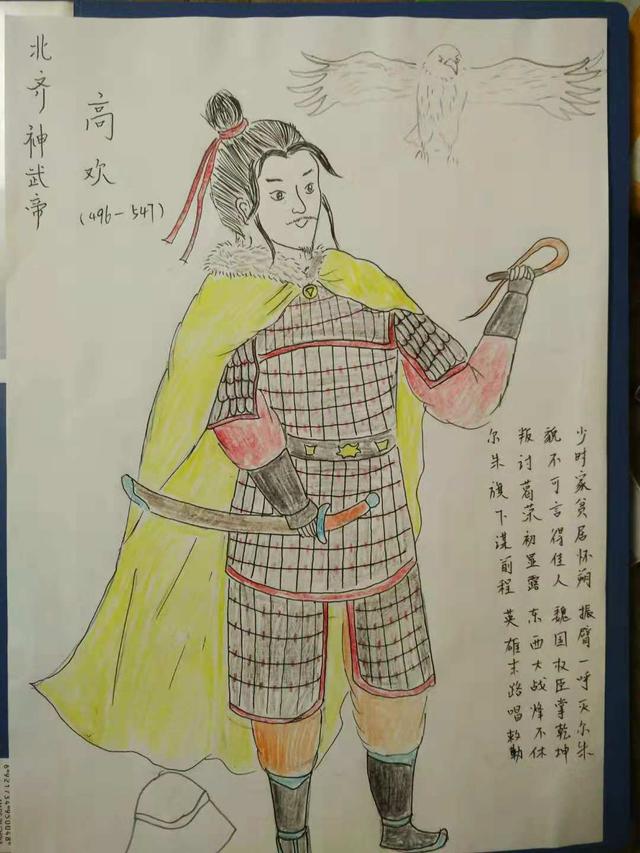 北齐·神武帝
高欢
(496-547)
少时家贫居怀朔 振臂一呼灭尔朱
貌不可言得佳人 魏国权臣掌乾坤
叛讨葛荣初显露 东西大战烽不休
尔朱旗下谋前程 英雄末路唱敕勒